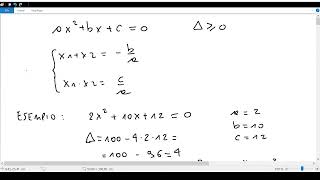 ax² + bx + c = 0   Δ ≥ 0
x1 + x2 = - b/a
x1 · x2 = c/a
ESEMPIO: 2x² + 10x + 12 = 0   a = 2
b = 10
Δ = 100 - 4 · 2 · 12 =   c = 12
= 100 - 96 = 4